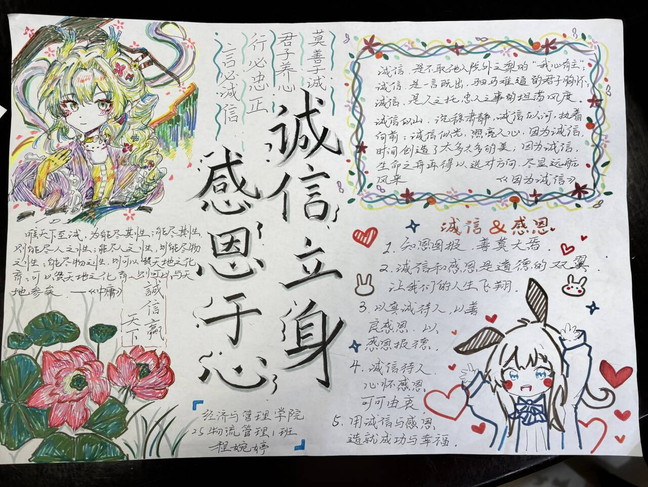 言必诚信
行必忠正
君子养心
莫善于诚
诚信立身
感恩于心
诚信，是不取他人院外之梨的“我心有主”，
诚信，是一言既出，驷马难追的君子胸怀，
诚信，是人之托，忠人之事的坦荡风度。
诚信似山，沉稳肃静，诚信似河，执着
向前；诚信似光，照亮人心，因为诚信，
时间创造了太多太多的美，因为诚信，
生命之舟再得以逃对方向，尽显远航
风采。《因为诚信》
唯天下至诚，为能尽其性；能尽其性
则能尽人之性；能尽人之性，则能尽物
之性；能尽物之性，则可以赞天地之化
育；可以赞天地之化育，则可以与天
地参矣 ——《中庸》
誠信贏
天下
诚信&感恩
1. 知恩图报，善莫大焉。
2. 诚信和感恩是道德的双翼，
让我们的人生飞翔
3. 以真诚待人，以善
良感恩，以
感恩报德。
4. 诚信待人
心怀感恩，
可可由衷，
5. 用诚信与感恩
造就成功与幸福。
经济与管理学院
25物流管理1班
程婉婷